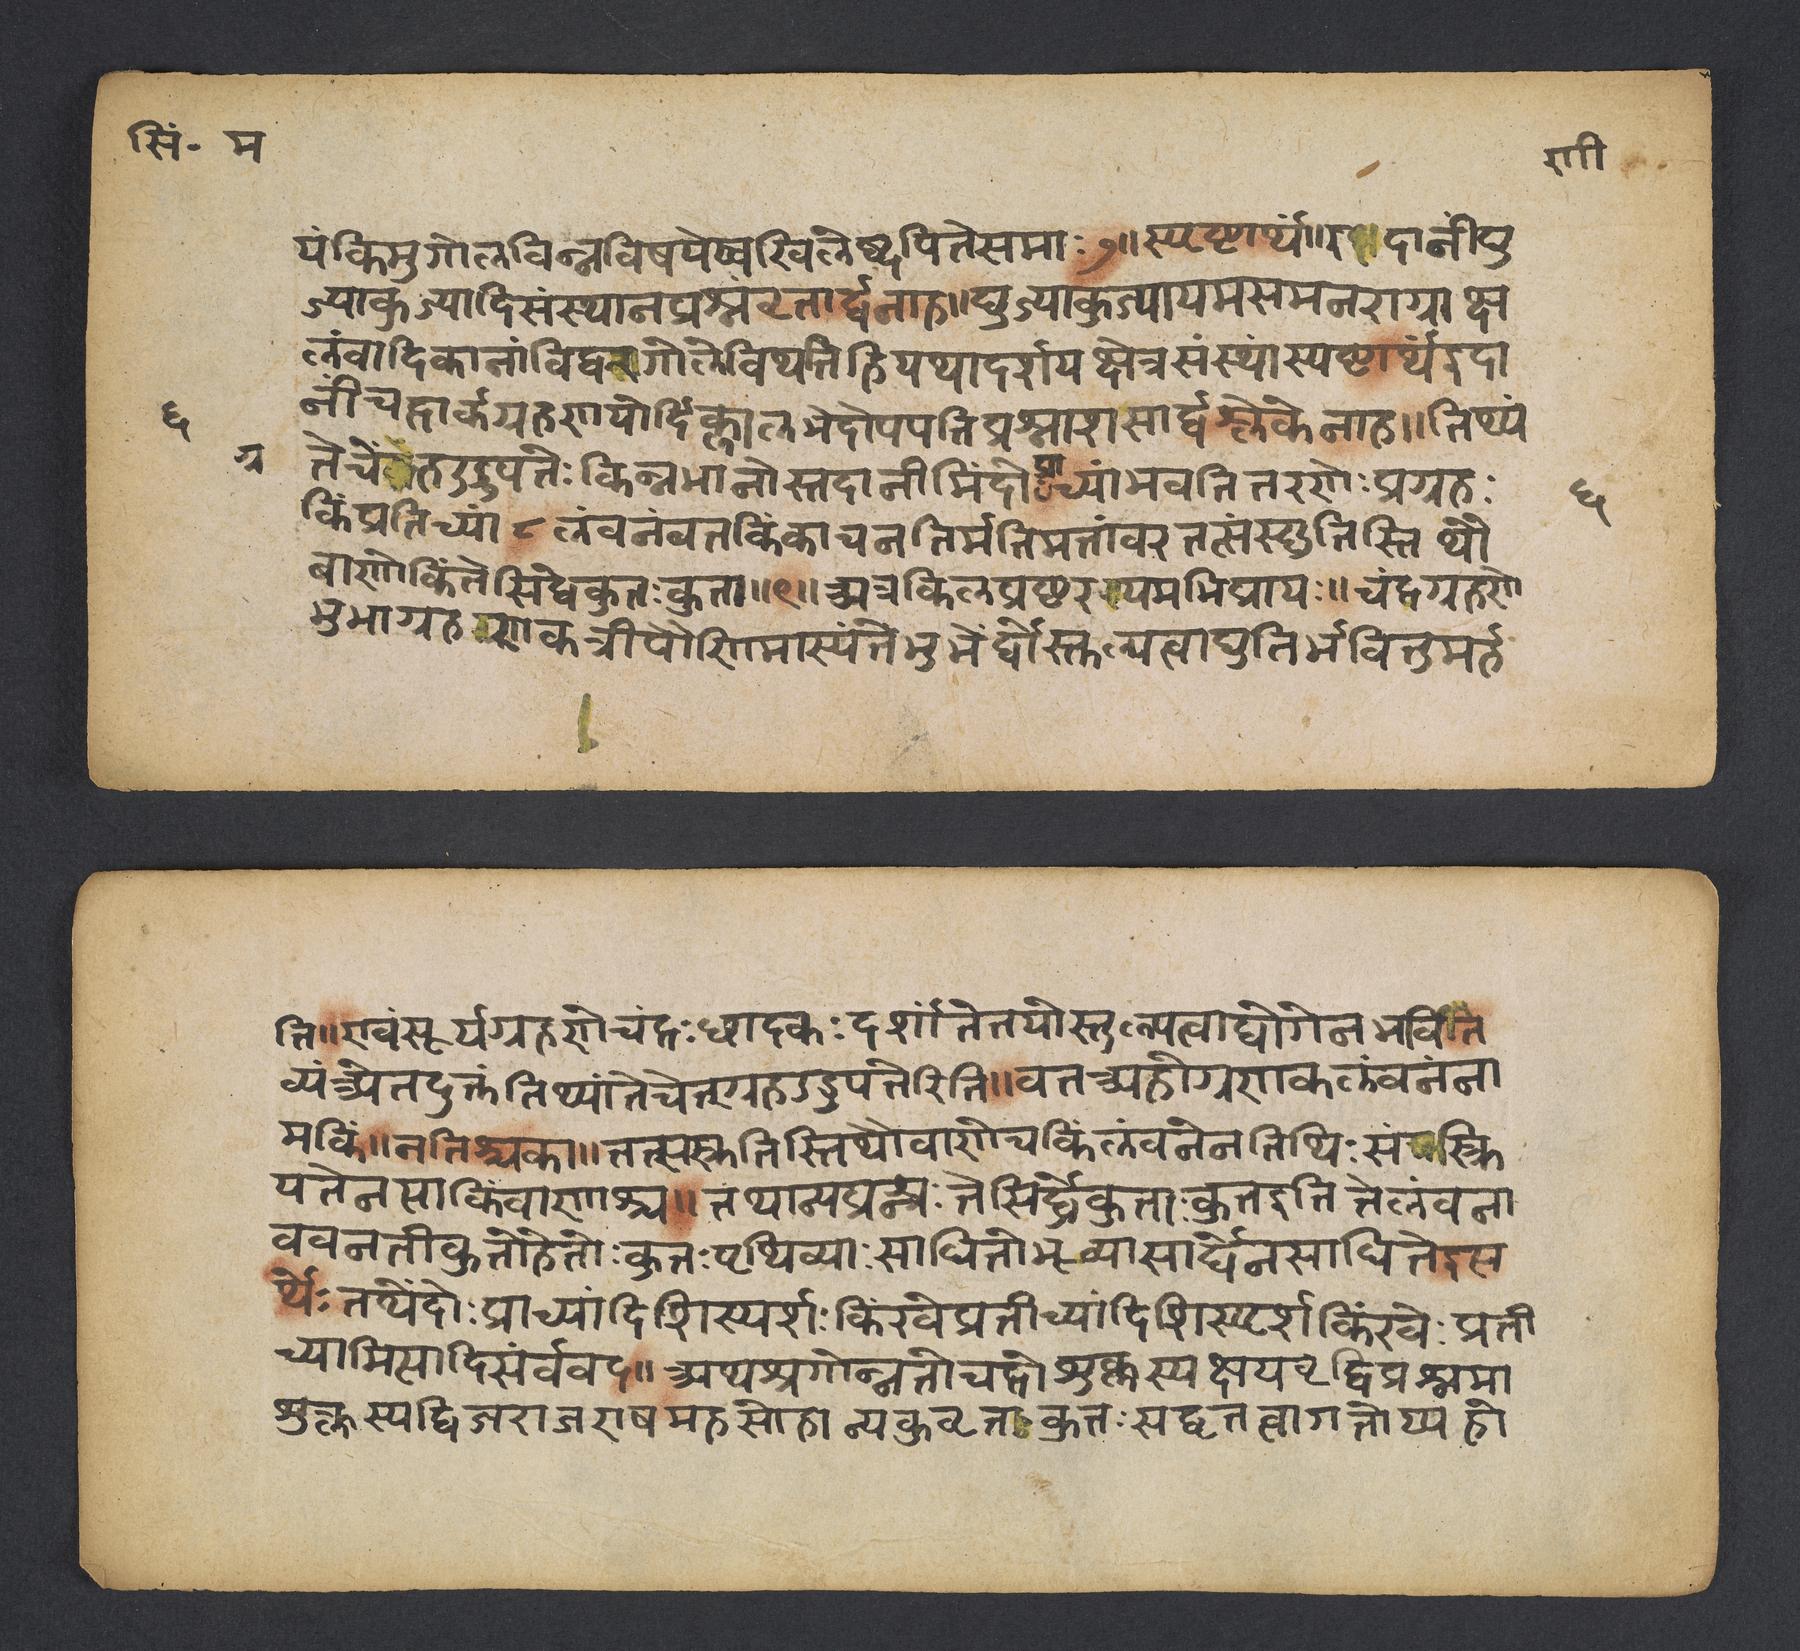 सिं॰ म
णी
यं किमु गोलविन्न विषयेष्वखिलेष्वपि ते समाः ७॥ स्पष्टार्थं॥ इदानीं द्यु
ज्याकुज्यादिसंस्थानप्रश्नं वृतार्द्धेनाह॥ द्युज्याकुज्यापायमसमनराग्राक्ष
लंवादिकानां विद्वन् गोले वियत्ति हि यथा दर्शय क्षेत्रसंस्थां स्पष्टार्थं इदा
नीं चंद्रार्कग्रहणयोर्दिक्कालभेदोपपत्तिप्रश्नाश सार्द्धश्लोकेनाह॥ तिथ्यं
६
ग्र
ते चे ग्रह उडुपतेः किन्न भानोस्तदानीमिंदोः प्राच्यां भवति तरणेः प्रग्रहः
६
किं प्रतिच्यां ८ लंवनं वत किं का च नतिर्मतिमतां वर तत्संस्छुतिस्तिथौ
बाणे किं ते सिद्धे कुतः कुता॥९॥ अत्र किल प्रष्टुरयमभिप्रायः॥ चंद्रग्रहणे
भुभा ग्रहणकर्त्री पौर्णिमास्यंते भुभेंर्द्वोस्तुल्यत्वाद्युतिर्भवितुमर्ह
ति॥ एवं सूर्यग्रहणे चंद्रः छादकः दर्शांते तयोस्तुल्यत्वाद्योगेन भवित
व्यं अ्येतदुक्तं तिथ्यांते चेत् ग्रह उडुपतेरिति॥ वत अहो ग्रणक लंवनं ना
म किं॥ नतिश्च का॥ तत्सस्कृतिस्तिथौ वाणे च किं लंवनेन तिथिः संस्क्रि
यते नसा किं वाणश्च॥ तथान्यप्रश्नः ते सिर्द्धे कुताः कुत इति ते लंवना
ववनती कुतो हेतोः कुतः पृथिव्याः साधितो भूव्यासार्धेन साधिते इस
र्थ्यः तथेंदोः प्राच्यां दिशि स्पर्शः किं रवे प्रतीच्यां दिशि स्पर्श किं रवेः प्रती
च्यामिसादि संर्ववद॥ अथ श्रृगोन्नतौ चद्रो शुक्लस्य क्षयवृद्धिप्रश्नमा
शुक्लस्य द्विजराज एष महसोहान्य कुवृताः कुतः सद्वृतत्वागतोप्यहो